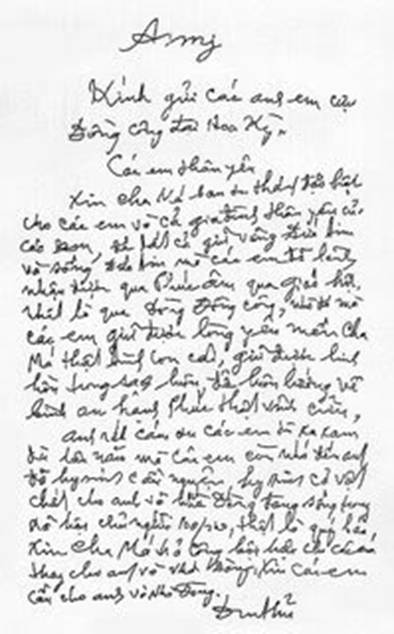 Kính gửi các anh em cựu
Đồng công tại Hoa Kỳ.
Các em thân yêu
Xin Cha Mẹ ban ơn thánh đặc biệt
cho các em và cả gia đình thân yêu của
các em, để tất cả giữ vững đức tin
và sống đức tin mà các em đã lãnh
nhận được qua Phúc âm qua giáo hội,
nhất là qua Dòng Đồng công, nhờ đó mà
các em giữ được lòng yêu mến Cha
Mẹ thật tình con cái, giữ được linh
hồn trong sạch luôn, để luôn hướng về
bình an hạnh phúc thật vĩnh cửu,
anh rất cám ơn các em dù xa xăm
dù lâu năm mà các em còn nhớ đến anh
để hy sinh cầu nguyện, hy sinh cả vật
chất cho anh và nhà Dòng đang sống trong
xã hội chủ nghĩa, thật là quý hóa,
Xin Cha Mẹ trả công bội hậu cho các em
thay cho anh và nhà Dòng, Xin các em
cầu cho anh và Nhà Dòng.